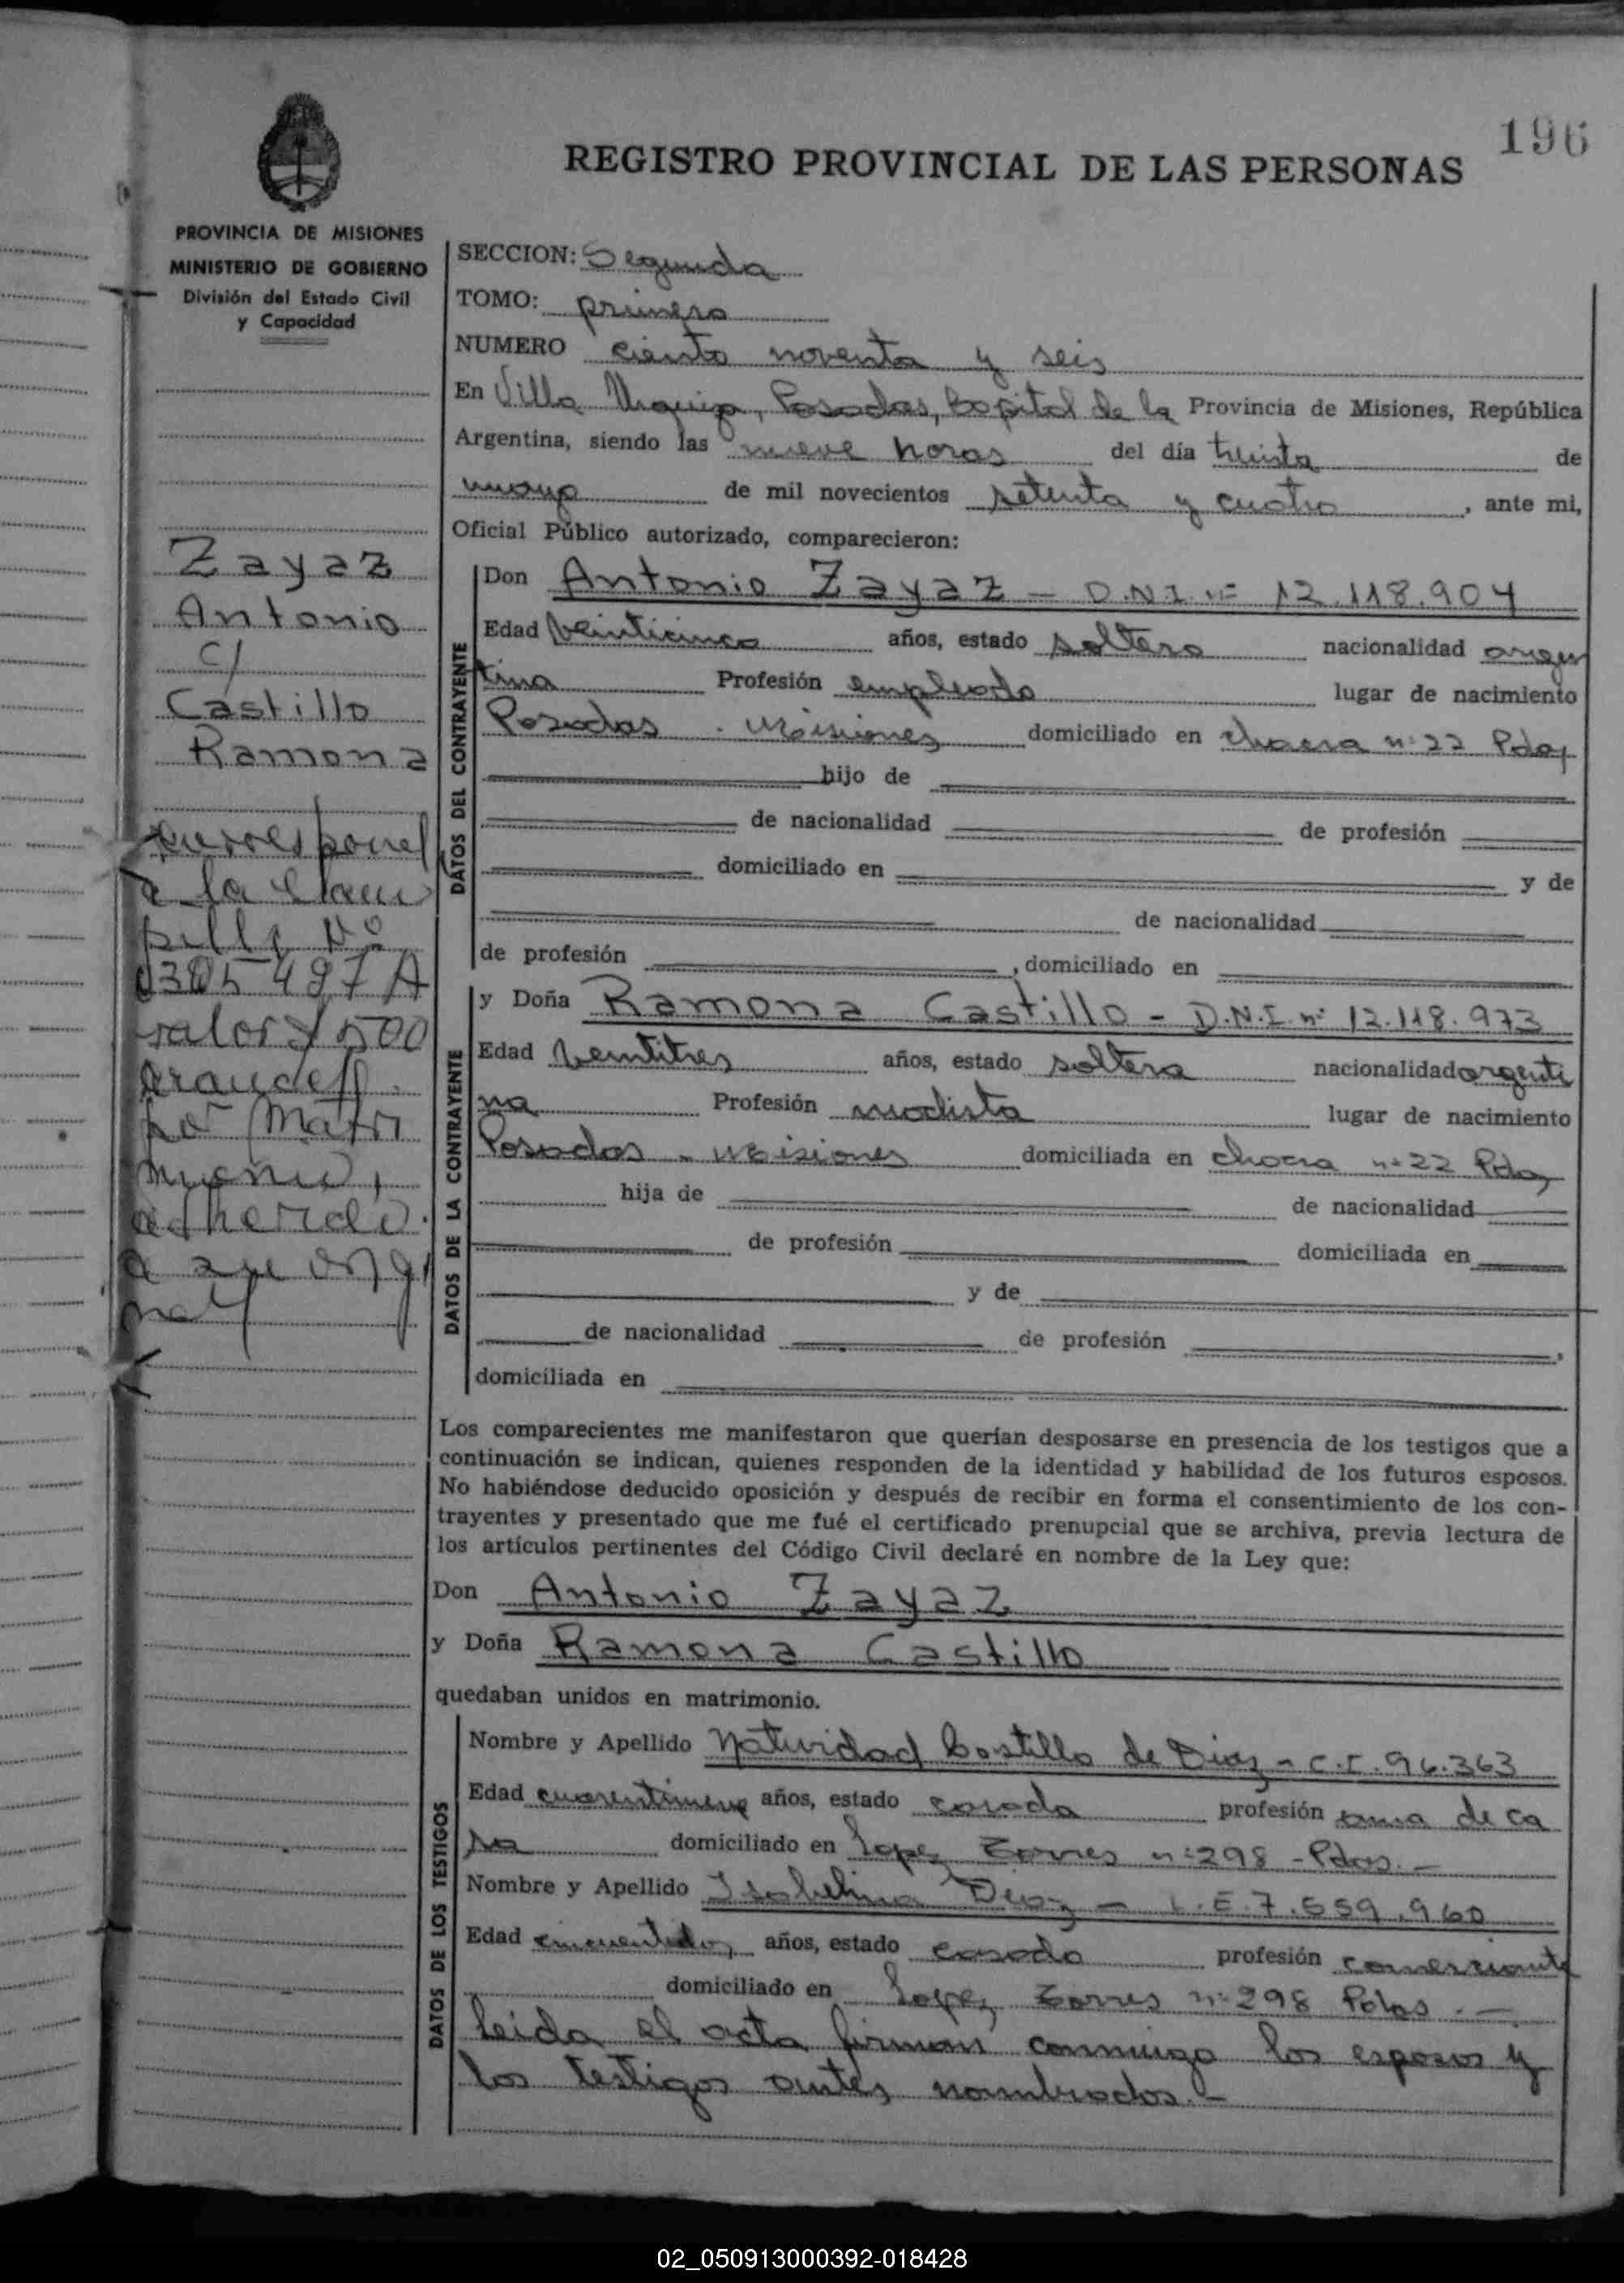 196
REGISTRO PROVINCIAL DE LAS PERSONAS
PROVINCIA DE MISIONES
MINISTERIO DE GOBIERNO
División del Estado Civil
y Capacidad
Zayaz
Antonio
c/
Castillo
Ramona
a la
valor $ 500
por Matri
monio,
adherido
a su origi
nal
SECCION: Segunda
TOMO: primero
NUMERO ciento noventa y seis
En Villa Urquiza, Posadas, Capital de la Provincia de Misiones, República
Argentina, siendo las nueve horas del día treinta de
mayo de mil novecientos setenta y cuatro, ante mi,
Oficial Público autorizado, comparecieron:
DATOS DEL CONTRAYENTE
Don Antonio Zayaz - D.N.I. nº 12.118.904
Edad veinticinco años, estado soltero nacionalidad argen
tina Profesión empleado lugar de nacimiento
Posadas - Misiones domiciliado en chacra nº 22 Pdas
hijo de
de nacionalidad de profesión
domiciliado en y de
de nacionalidad
de profesión , domiciliado en
DATOS DE LA CONTRAYENTE
y Doña Ramona Castillo - D.N.I. nº 12.118.973
Edad veintitres años, estado soltera nacionalidad argenti
na Profesión modista lugar de nacimiento
Posadas - Misiones domiciliada en chacra nº 22 Pdas
hija de de nacionalidad
de profesión domiciliada en
y de
de nacionalidad de profesión ,
domiciliada en
Los comparecientes me manifestaron que querían desposarse en presencia de los testigos que a
continuación se indican, quienes responden de la identidad y habilidad de los futuros esposos.
No habiéndose deducido oposición y después de recibir en forma el consentimiento de los con-
trayentes y presentado que me fué el certificado prenupcial que se archiva, previa lectura de
los artículos pertinentes del Código Civil declaré en nombre de la Ley que:
Don Antonio Zayaz
y Doña Ramona Castillo
quedaban unidos en matrimonio.
DATOS DE LOS TESTIGOS
Nombre y Apellido Natividad Castillo de Diaz - C.I. 96.363
Edad cuarentinueve años, estado casada profesión ama de ca
sa domiciliado en Lopez Torres nº 298 - Pdas. -
Nombre y Apellido Isabelino Diaz - L.E. 7.559.960
Edad cincuentidos años, estado casado profesión comerciante
domiciliado en Lopez Torres nº 298 Pdas. -
Leida el acta firman conmigo los esposos y
los testigos antes nombrados. -
02_050913000392-018428